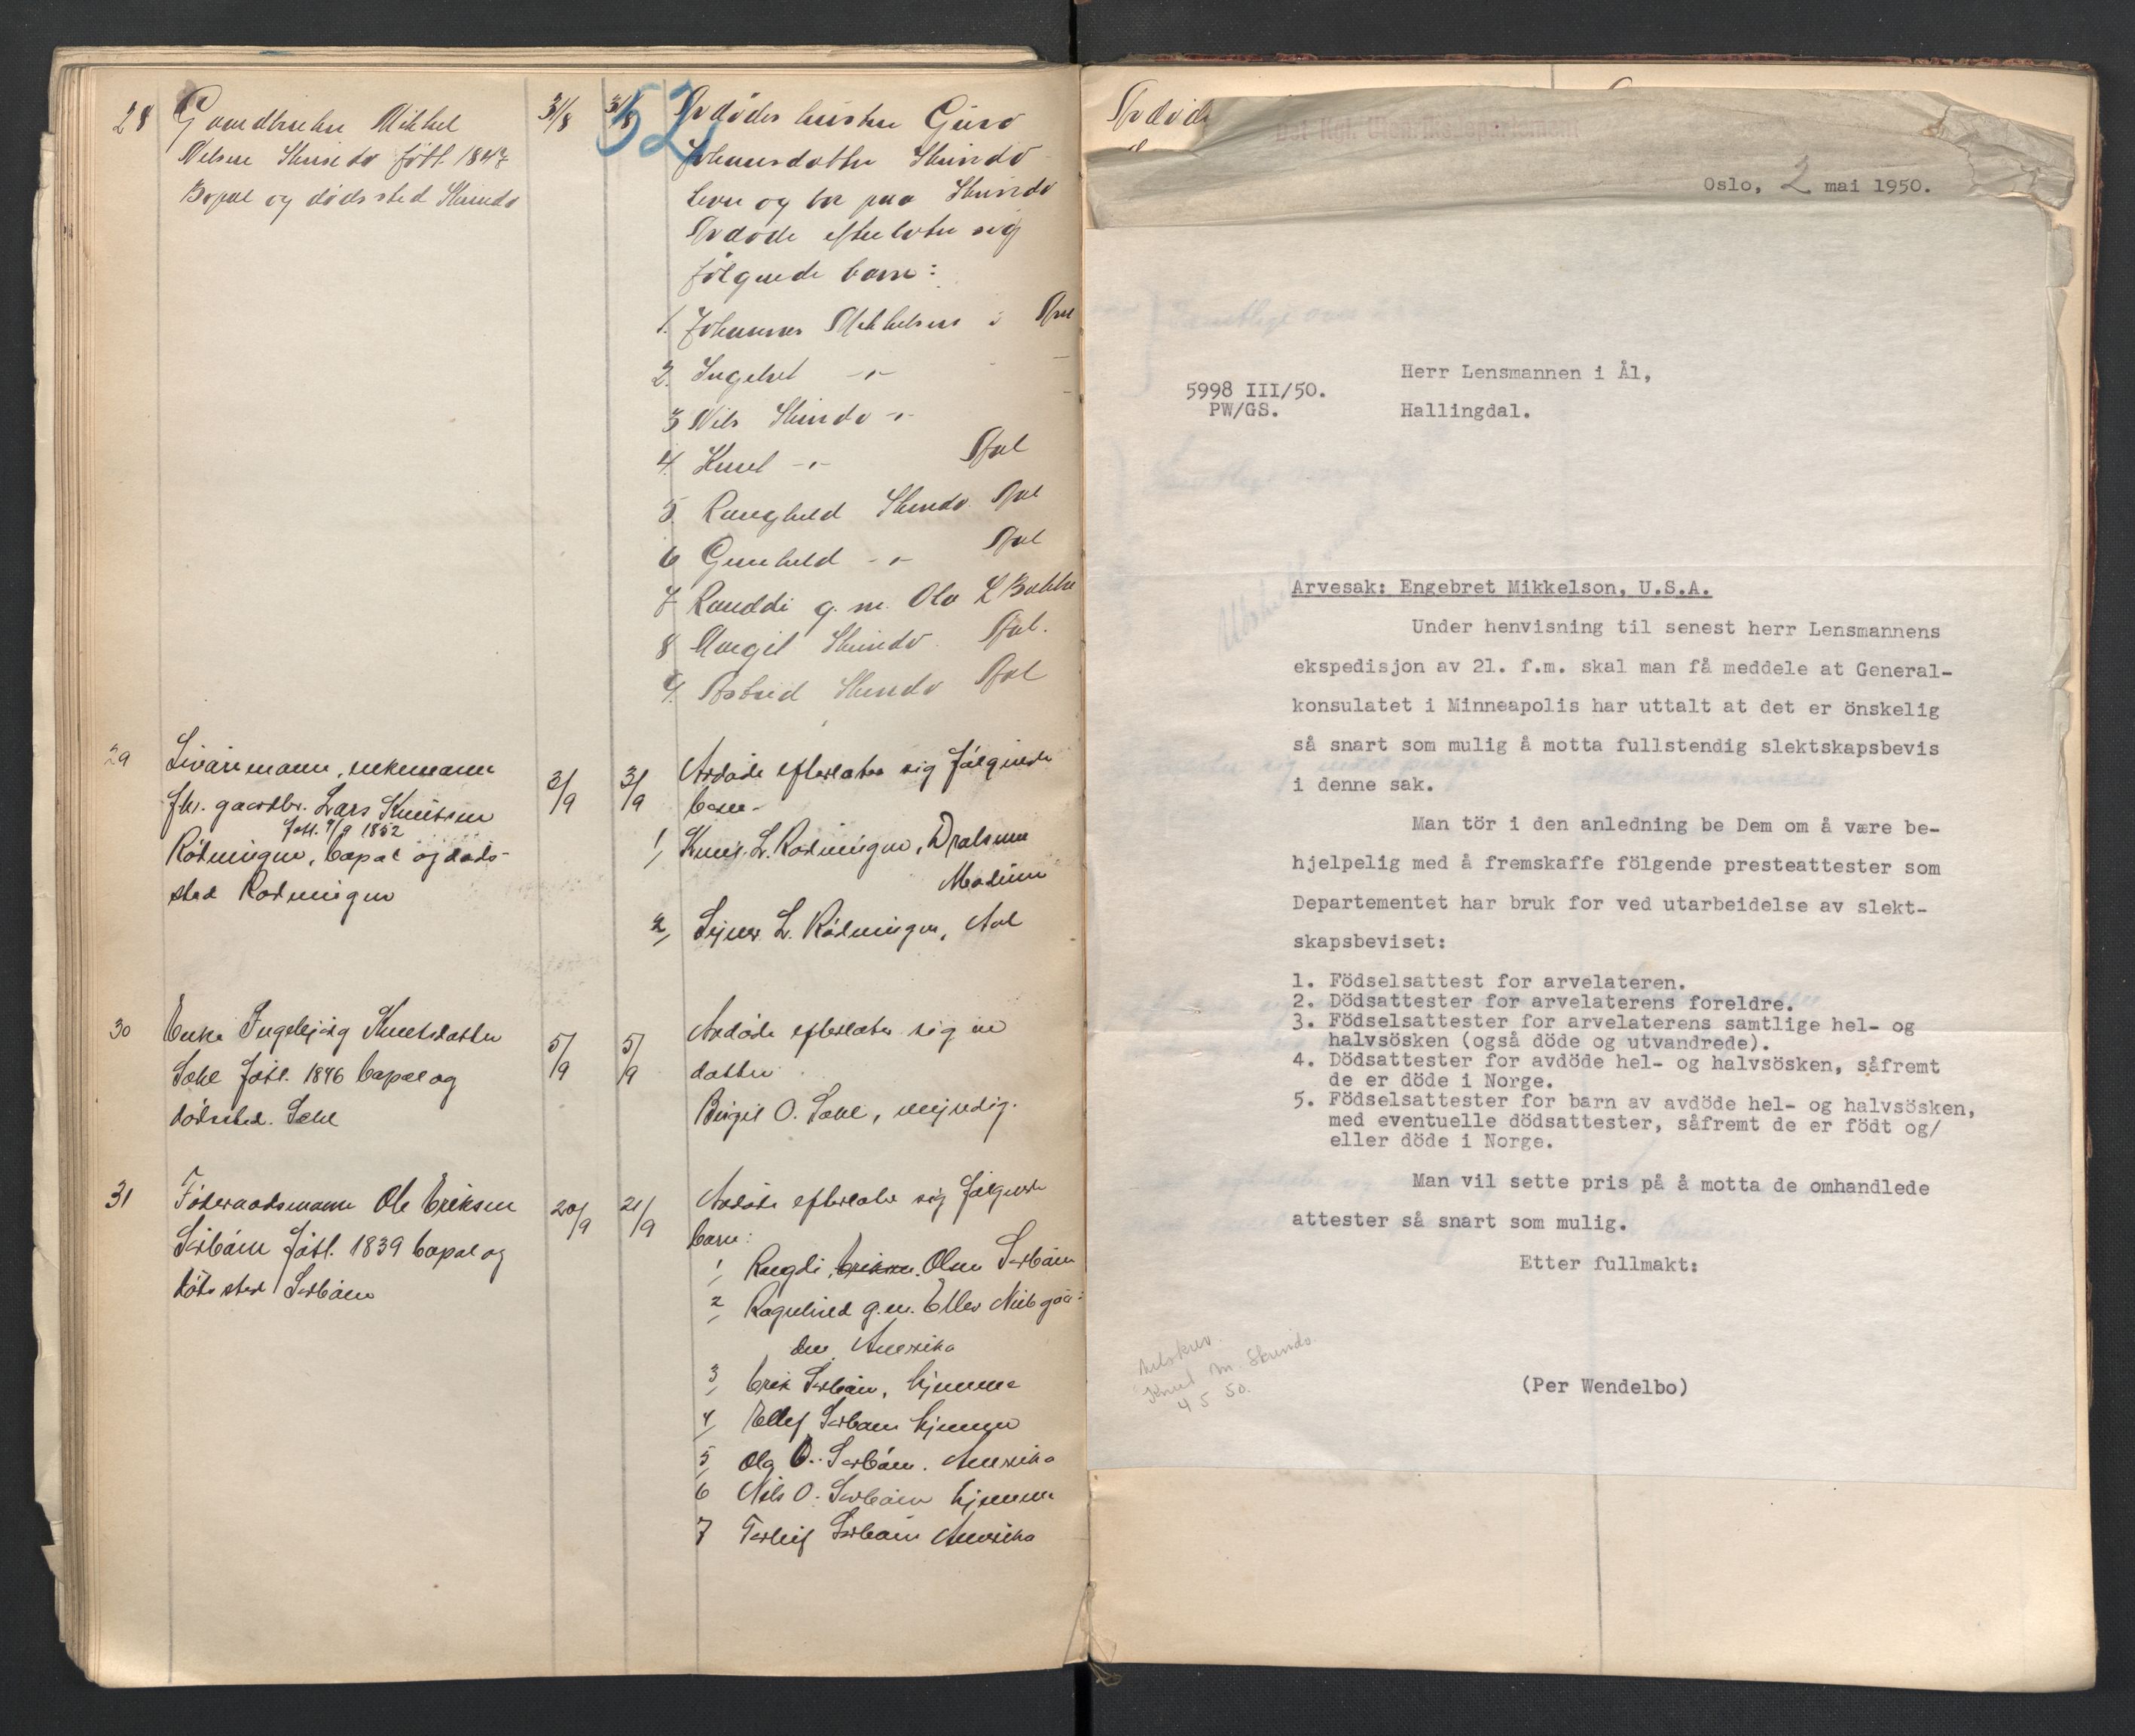 52
28
Gaardbruker Mikkel
Nilsen Skrindo født 184
Bopæl og dødssted Skrindo
31/8
31/8
Avdødes hustru Guro
Johannesdotter Skrindo
lever og bor paa Skrindo
Avdøde efterlater sig
følgende barn:
1. Johannes Mikkelsen i
2. Ingebret -"-
3 Nils Skrindo -"-
4. Knut -"- Aal
5. Ranghild Skrindo Aal
6 Gunhild -"- Aal
7 Randdi g. m. Ola L Bakke
8 Margit Skrindo. Aal.
9. Astrid Skrindo Aal
29
Livøremann, enkemann
fhv. gaardbr. Lars Knutsen
født. 9/9 1852
Rødningen, bopæl og døds-
sted Rødningen
3/9
3/9
Avdøde efterlater sig følgende
barn
1, Knut. L. Rødningen,
Modum
2, L. Rødningen, Aal
30
Enke Ingebjørg Knutsdatter
født. 1846 bopæl og
dødssted.
5/9
5/9
Avdøde efterlater sig en
datter
Birgit O. , myndig.
31
Føderaadsmann Ole Eriksen
født. 1839 bopæl og
dødssted
20/9
21/9
Avdøde efterlater sig følgende
barn:
1, Olsen
2, Ragnhild g.m.
den, Amerika
3, Erik , hjemme
4, Ellef hjemme
5, Amerika
6 Nils O. hjemme
7 Amerika
Avdøde
Det Kgl. Utenriksdepartement
Oslo, 2 mai 1950.
Herr Lensmannen i Ål,
5998 III/50.
PW/GS.
Hallingdal.
Arvesak: Engebret Mikkelson, U.S.A.
Under henvisning til senest herr Lensmannens
ekspedisjon av 21. f.m. skal man få meddele at General-
konsulatet i Minneapolis har uttalt at det er önskelig
så snart som mulig å motta fullstendig slektskapsbevis
i denne sak.
Man tör i den anledning be Dem om å være be-
hjelpelig med å fremskaffe fölgende presteattester som
Departementet har bruk for ved utarbeidelse av slekt-
skapsbeviset:
1. Födselsattest for arvelateren.
2. Dödsattester for arvelaterens foreldre.
3. Födselsattester for arvelaterens samtlige hel- og
halvsösken (også döde og utvandrede).
4. Dödsattester for avdöde hel- og halvsösken, såfremt
de er döde i Norge.
5. Födselsattester for barn av avdöde hel- og halvsösken,
med eventuelle dödsattester, såfremt de er födt og/
eller döde i Norge.
Man vil sette pris på å motta de omhandlede
attester så snart som mulig.
Etter fullmakt:
(Per Wendelbo)
Knut M. Skrindo.
4 5 50.